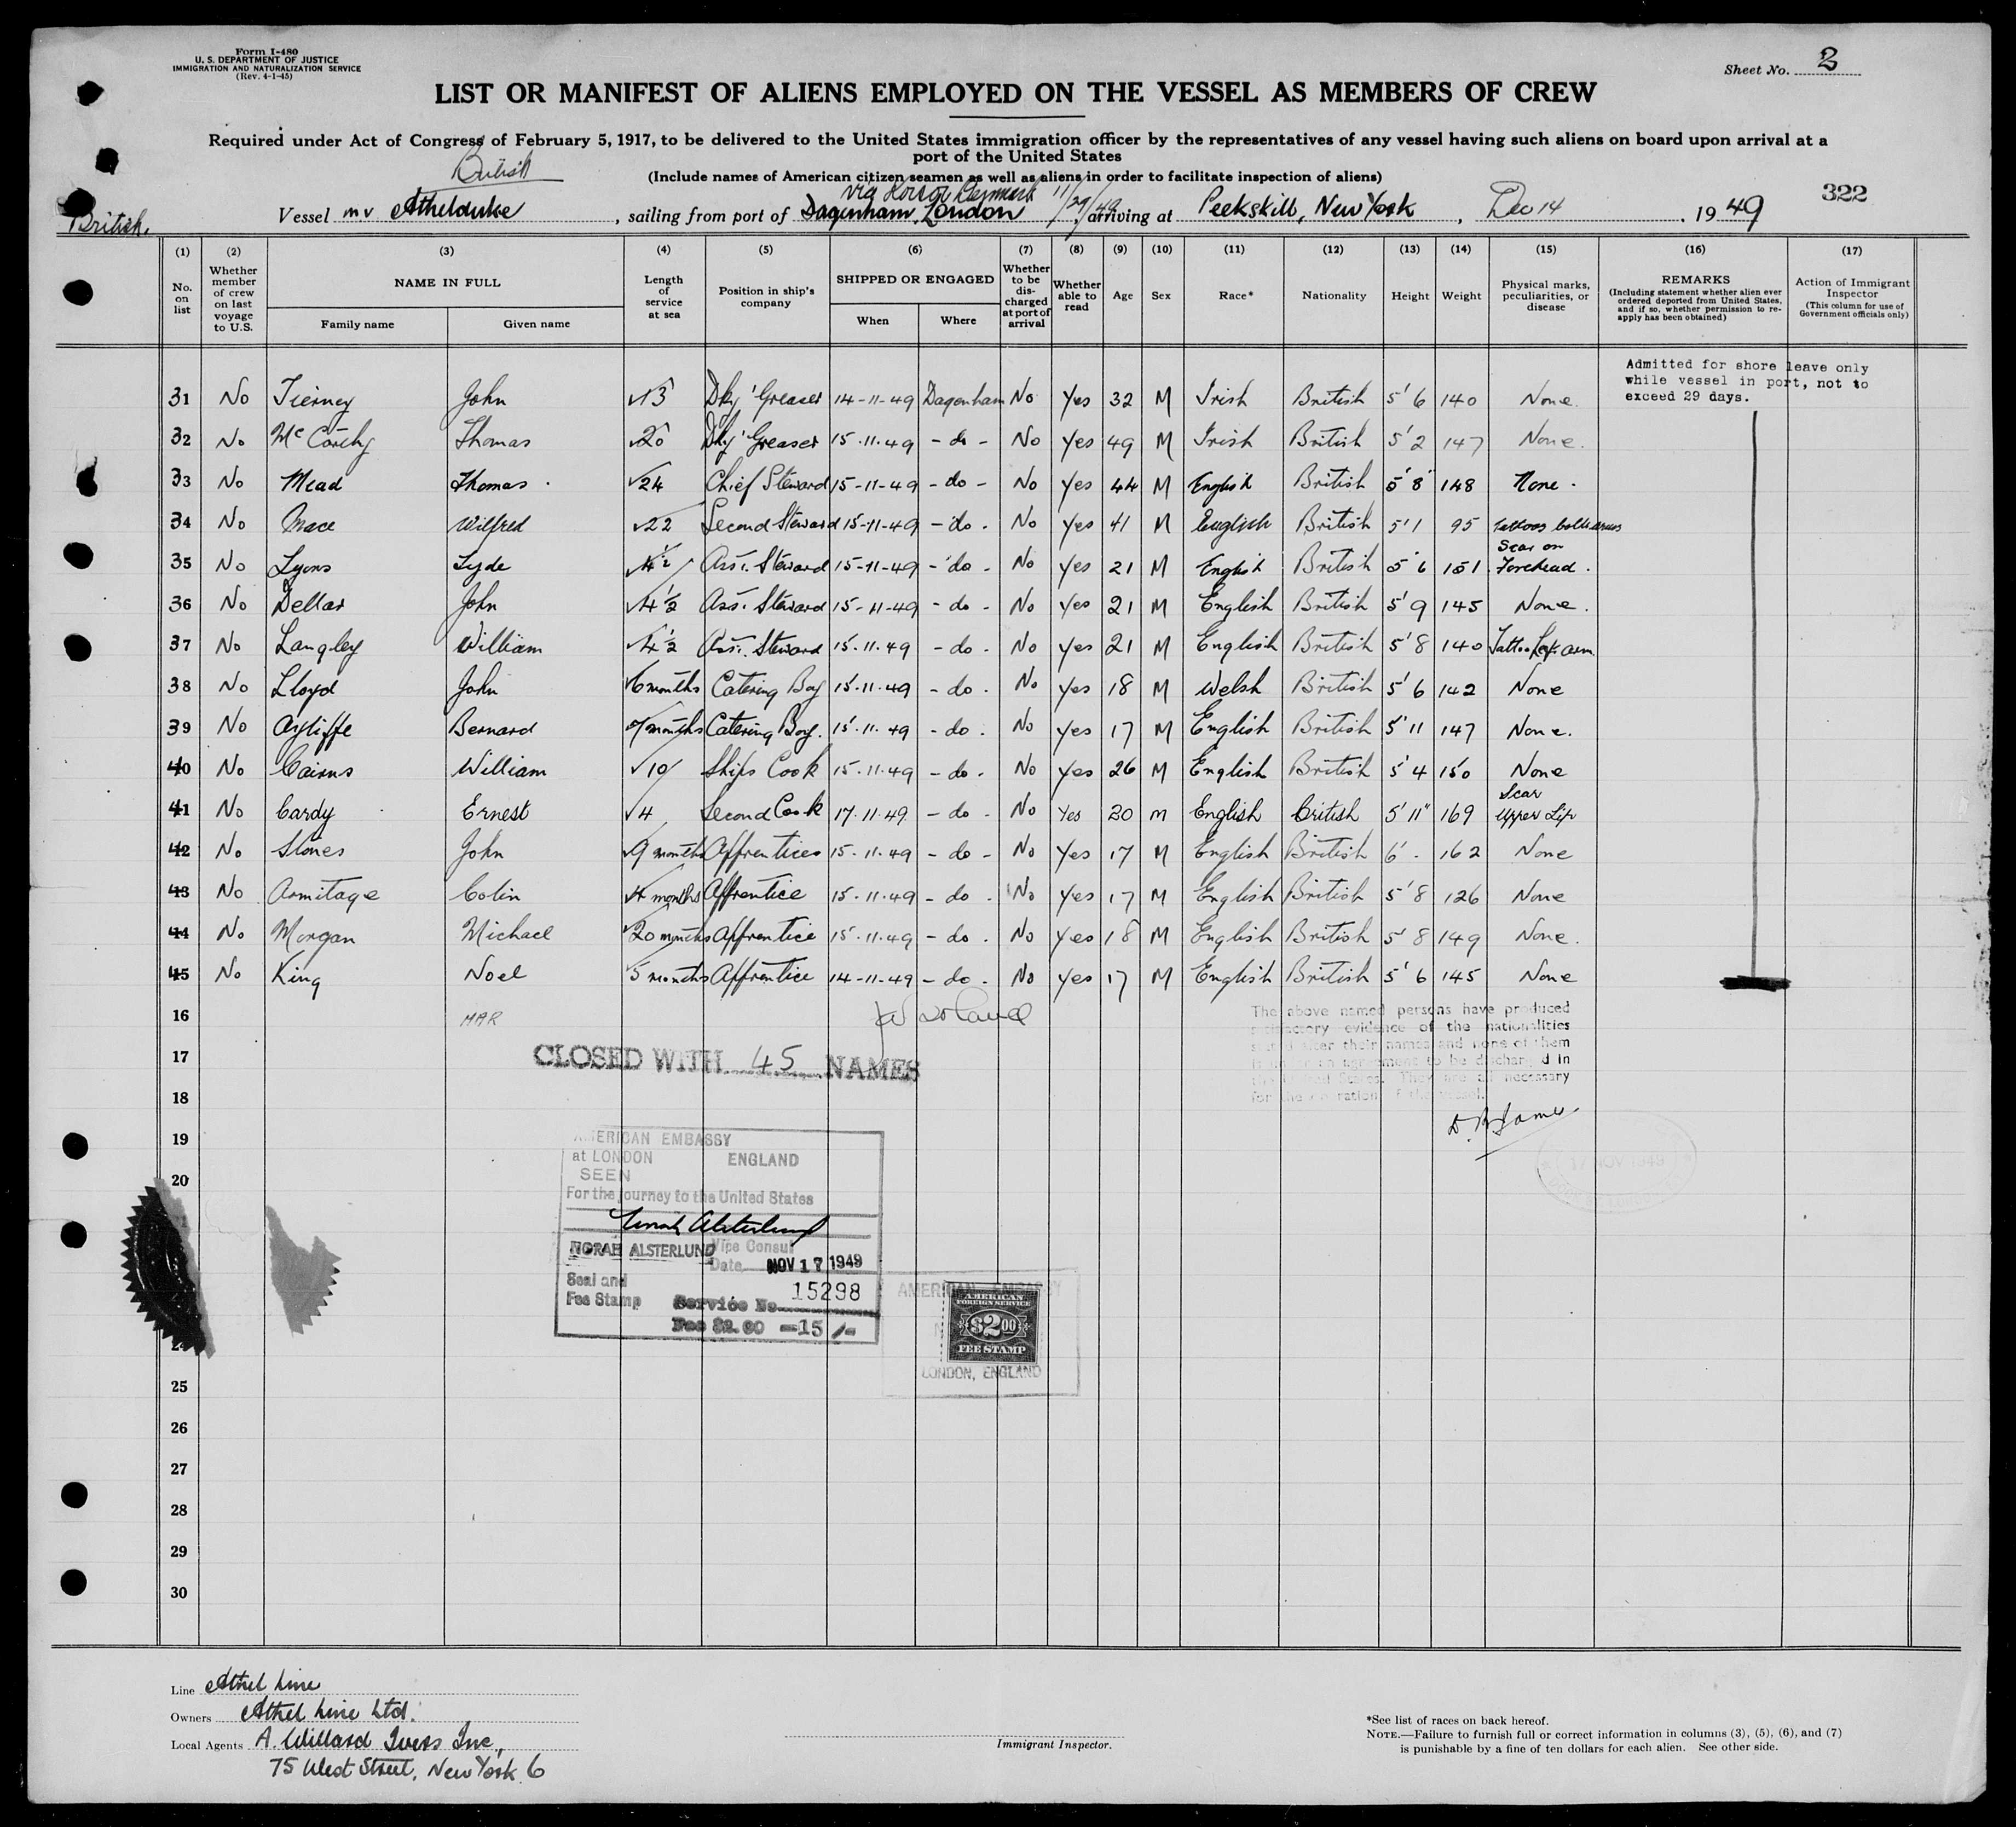 Form I-480
U. S. DEPARTMENT OF JUSTICE
IMMIGRATION AND NATURALIZATION SERVICE
(Rev. 4-1-45)
Sheet No. 2
LIST OR MANIFEST OF ALIENS EMPLOYED ON THE VESSEL AS MEMBERS OF CREW
Required under Act of Congress of February 5, 1917, to be delivered to the United States immigration officer by the representatives of any vessel having such aliens on board upon arrival at a
port of the United States
British
(Include names of American citizen seamen as well as aliens in order to facilitate inspection of aliens)
via Denmark 11/29/49
322
British.
Vessel mv Athelduke, sailing from port of Dagenham, London, arriving at Peekskill, New York, Dec 14, 1949
(1) (2) (3) (4) (5) (6) (7) (8) (9) (10) (11) (12) (13) (14) (15) (16) (17)
No. on list
Whether member of crew on last voyage to U.S.
NAME IN FULL
Family name
Given name
Length of service at sea
Position in ship's company
SHIPPED OR ENGAGED
When
Where
Whether to be discharged at port of arrival
Whether able to read
Age
Sex
Race*
Nationality
Height
Weight
Physical marks, peculiarities, or disease
REMARKS
(Including statement whether alien ever ordered deported from United States, and if so, whether permission to re-apply has been obtained)
Action of Immigrant Inspector
(This column for use of Government officials only)
Admitted for shore leave only
while vessel in port, not to
exceed 29 days.
31 No Tierney John 13 Dky' Greaser 14-11-49 Dagenham No Yes 32 M Irish British 5'6 140 None.
32 No McCarthy Thomas 20 Dky' Greaser 15.11.49 - do - No Yes 49 M Irish British 5'2 147 None.
33 No Mead Thomas 24 Chief Steward 15-11-49 - do - No Yes 44 M English British 5'8 148 None.
34 No Mace Wilfred 22 Second Steward 15-11-49 - do - No Yes 41 M English British 5'1 95 Tattoos both arms
35 No Lyons Lyde 4½ Ass. Steward 15-11-49 - do - No Yes 21 M English British 5'6 151 Scar on Forehead.
36 No Dellar John 4½ Ass. Steward 15-11-49 - do - No Yes 21 M English British 5'9 145 None.
37 No Langley William 4½ Ass. Steward 15.11.49 - do - No Yes 21 M English British 5'8 140 Tattoo Left arm
38 No Lloyd John 6 months Catering Boy 15.11.49 - do - No Yes 18 M Welsh British 5'6 142 None
39 No Ayliffe Bernard 7 months Catering Boy. 15.11.49 - do - No Yes 17 M English British 5'11 147 None.
40 No Cairns William 10 Ships Cook 15.11.49 - do - No Yes 26 M English British 5'4 150 None
41 No Cardy Ernest 4 Second Cook 17.11.49 - do - No Yes 20 M English British 5'11" 169 Scar Upper Lip
42 No Stones John 9 months Apprentices 15.11.49 - do - No Yes 17 M English British 6'- 162 None
43 No Armitage Colin 4 months Apprentice 15.11.49 - do - No Yes 17 M English British 5'8 126 None
44 No Morgan Michael 20 months Apprentice 15.11.49 - do - No Yes 18 M English British 5'8 149 None.
45 No King Noel 5 months Apprentice 14-11-49 - do - No Yes 17 M English British 5'6 145 None
16
MAR
The above named persons have produced
satisfactory evidence of the nationalities
stated after their names and none of them
is under an agreement to be discharged in
the United States. They are all necessary
for the operation of the vessel.
17
CLOSED WITH 45 NAMES
18
19
20
AMERICAN EMBASSY
at LONDON ENGLAND
SEEN
For the journey to the United States
Norah Alsterlund
NORAH ALSTERLUND Vice Consul
Date NOV 17 1949
Seal and
Fee Stamp
Service No. 15298
Fee $2.00 = 15/-
AMERICAN EMBASSY
AMERICAN
FOREIGN SERVICE
$2.00
FEE STAMP
LONDON, ENGLAND
17 NOV 1949
24
25
26
27
28
29
30
Line Athel Line
Owners Athel Line Ltd.
Local Agents A. Willard Ivers Inc,
75 West Street, New York 6
Immigrant Inspector.
*See list of races on back hereof.
NOTE.—Failure to furnish full or correct information in columns (3), (5), (6), and (7)
is punishable by a fine of ten dollars for each alien. See other side.